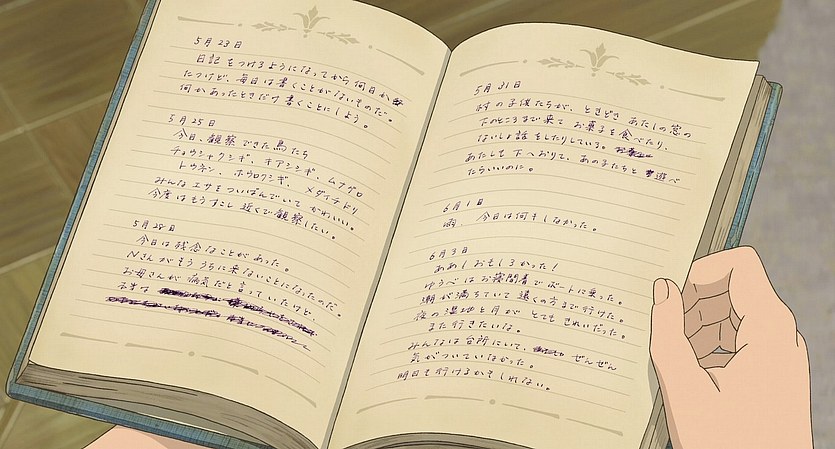 5月23日
日記をつけるようになってから何日か
たつけど、毎日は書くことがないものだ。
何かあったときだけ書くことにしよう。
5月25日
今日、観察できた鳥たち
チュウシャクシギ、キアシシギ、ムナグロ
トウネン、ホウロクシギ、メダイチドリ
みんなエサをついばんでいてかわいい。
今度はもうすこし近くで観察したい。
5月28日
今日は残念なことがあった。
Nさんがもううちに来ないことになったのだ。
お母さんが病気だと言っていたけど、
本当は
5月31日
村の子供たちが、ときどきあたしの窓の
下のところまで来てお菓子を食べたり、
ないしょ話をしたりしている。
あたしも下へおりて、あの子たちと遊べ
たらいいのに。
6月1日
雨。今日は何もしなかった。
6月3日
ああ!おもしろかった!
ゆうべはお寝間着でボートに乗った。
潮が満ちていて遠くの方まで行けた。
夜の湿地と月がとてもきれいだった。
また行きたいな。
みんなは台所にいて、ぜんぜん
気がついていなかった。
明日も行けるかもしれない。